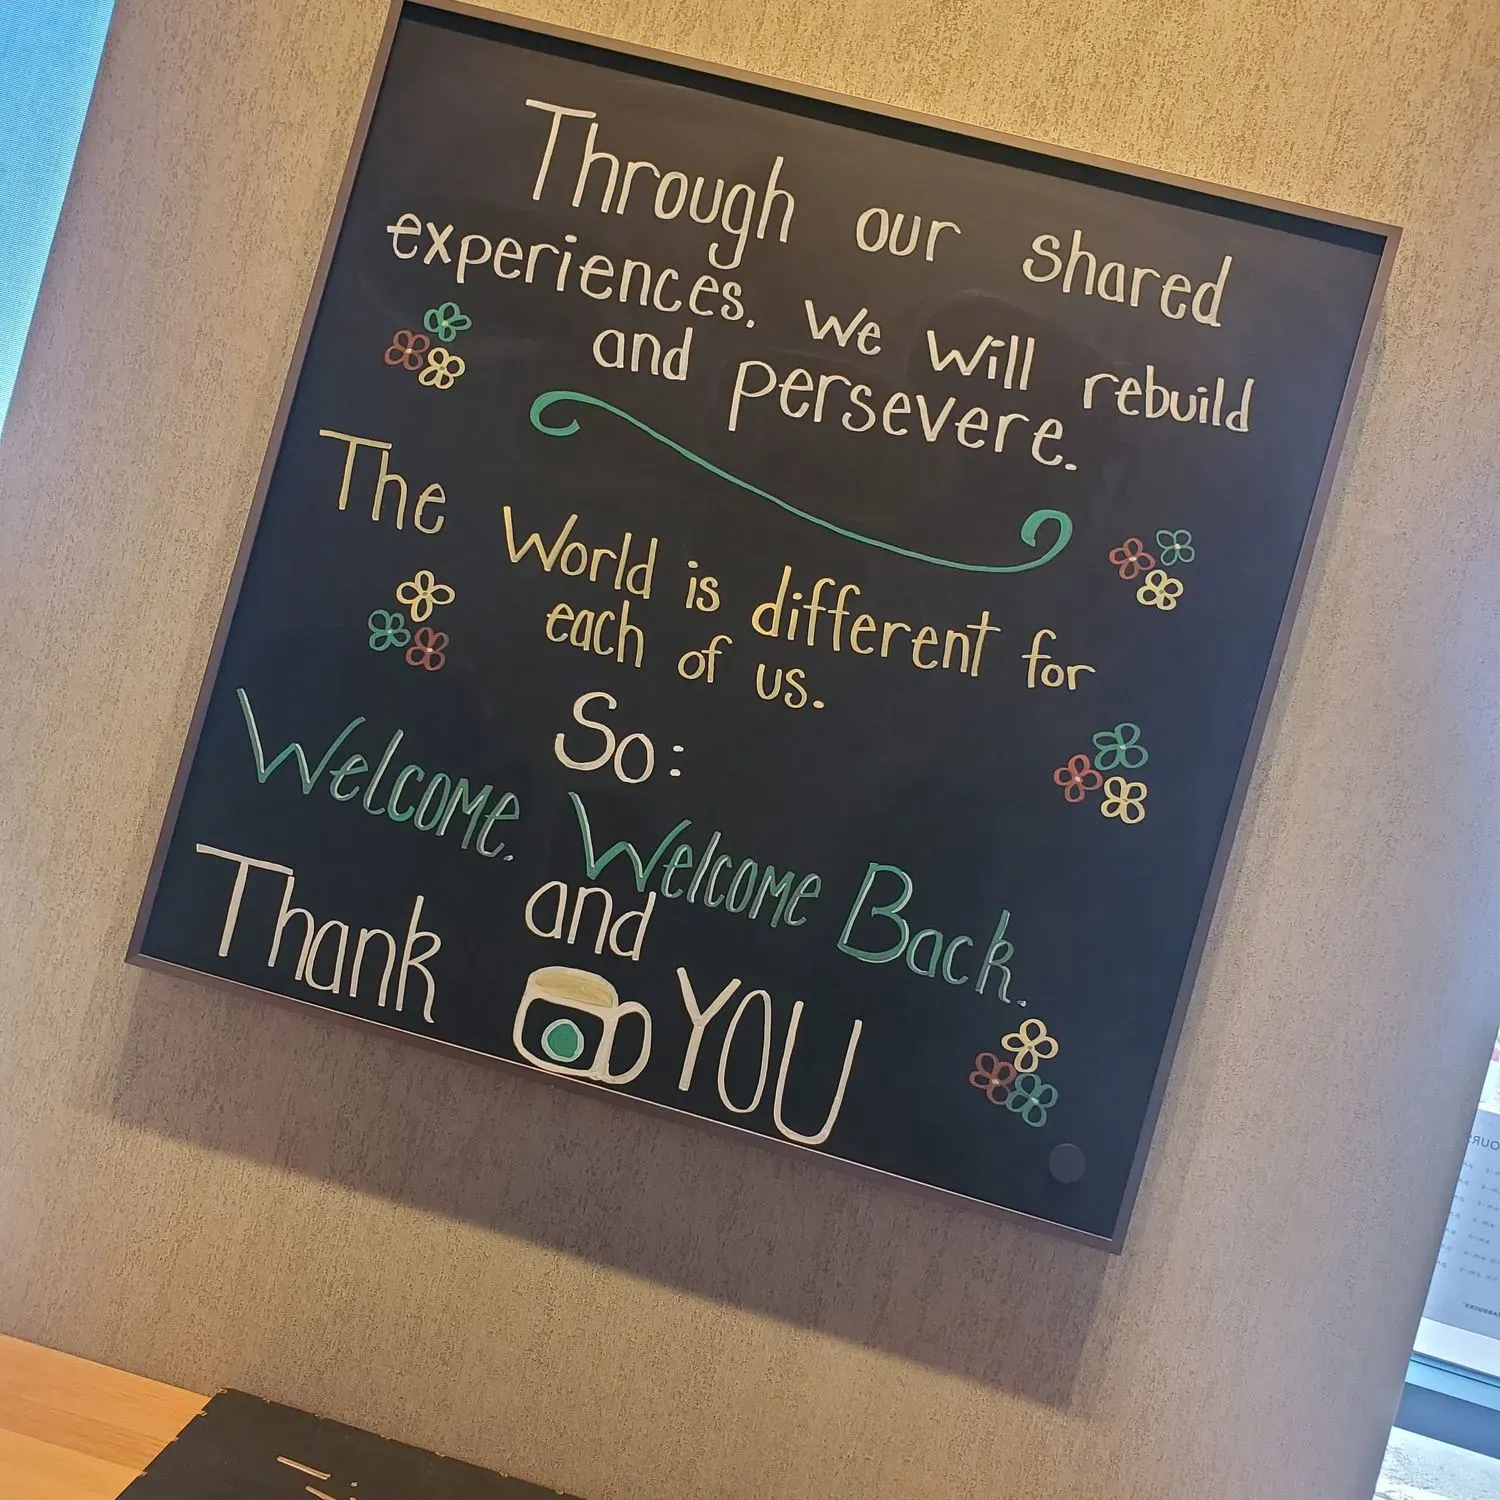 Through our shared
experiences. We will rebuild
and persevere.
The World is different for
each of us.
So:
Welcome. Welcome Back.
and
Thank YOU